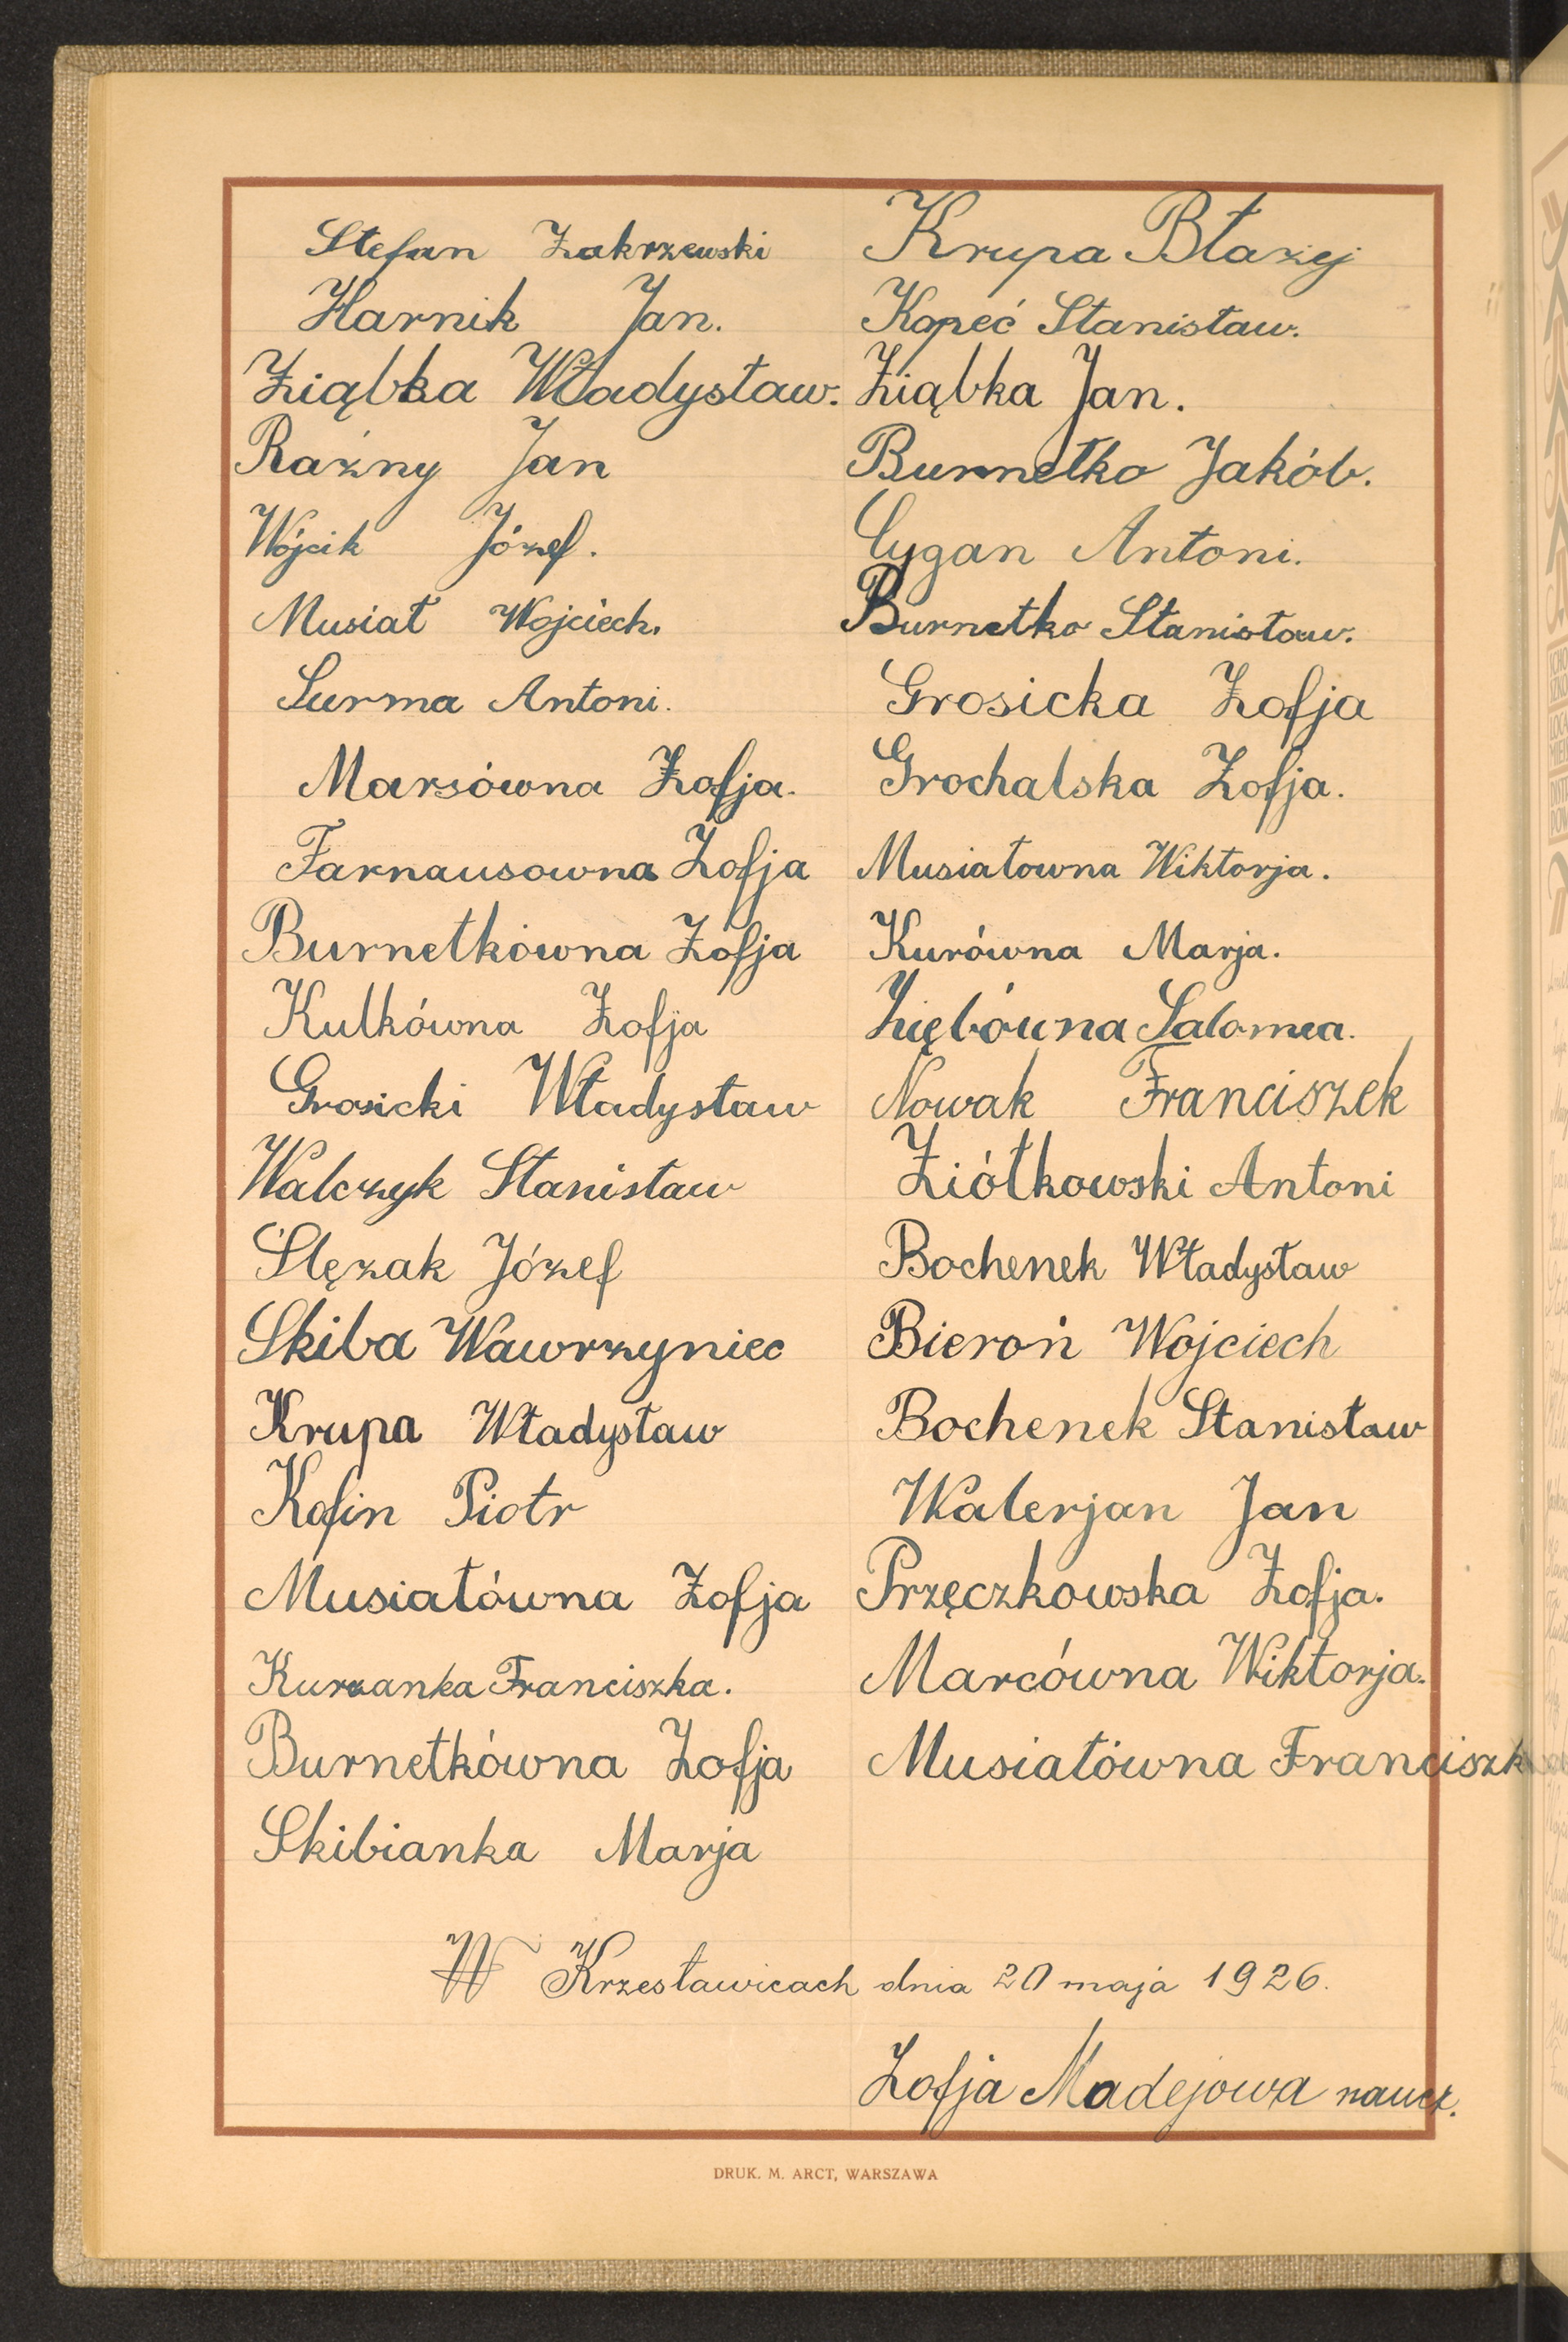 Stefan Zakrzewski
Harnik Jan.
Ziąbka Władysław.
Raźny Jan
Wójcik Józef.
Musiał Wojciech.
Surma Antoni.
Marsówna Zofja.
Farnausowna Zofja
Burnetkówna Zofja
Kulkówna Zofja
Grosicki Władysław
Walczyk Stanisław
Ślęzak Józef
Skiba Wawrzyniec
Krupa Władysław
Kofin Piotr
Musiałówna Zofja
Kurzanka Franciszka.
Burnetkówna Zofja
Skibianka Marja
Krupa Błażej
Kopeć Stanisław.
Ziąbka Jan.
Burnetko Jakób.
Cygan Antoni.
Burnetko Stanisław.
Grosicka Zofja
Grochalska Zofja.
Musiałowna Wiktorja.
Kurówna Marja.
Ziębówna Salomea.
Nowak Franciszek
Ziółkowski Antoni
Bochenek Władysław
Bieroń Wojciech
Bochenek Stanisław
Walerjan Jan
Przęczkowska Zofja.
Marcówna Wiktorja.
Musiałówna Franciszk
W Krzesławicach dnia 20 maja 1926.
Zofja Madejowa naucz.
DRUK. M. ARCT, WARSZAWA